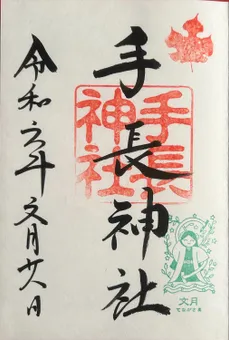 手長神社
手長
神社
文月
てながさま
令和六年文月廿八日